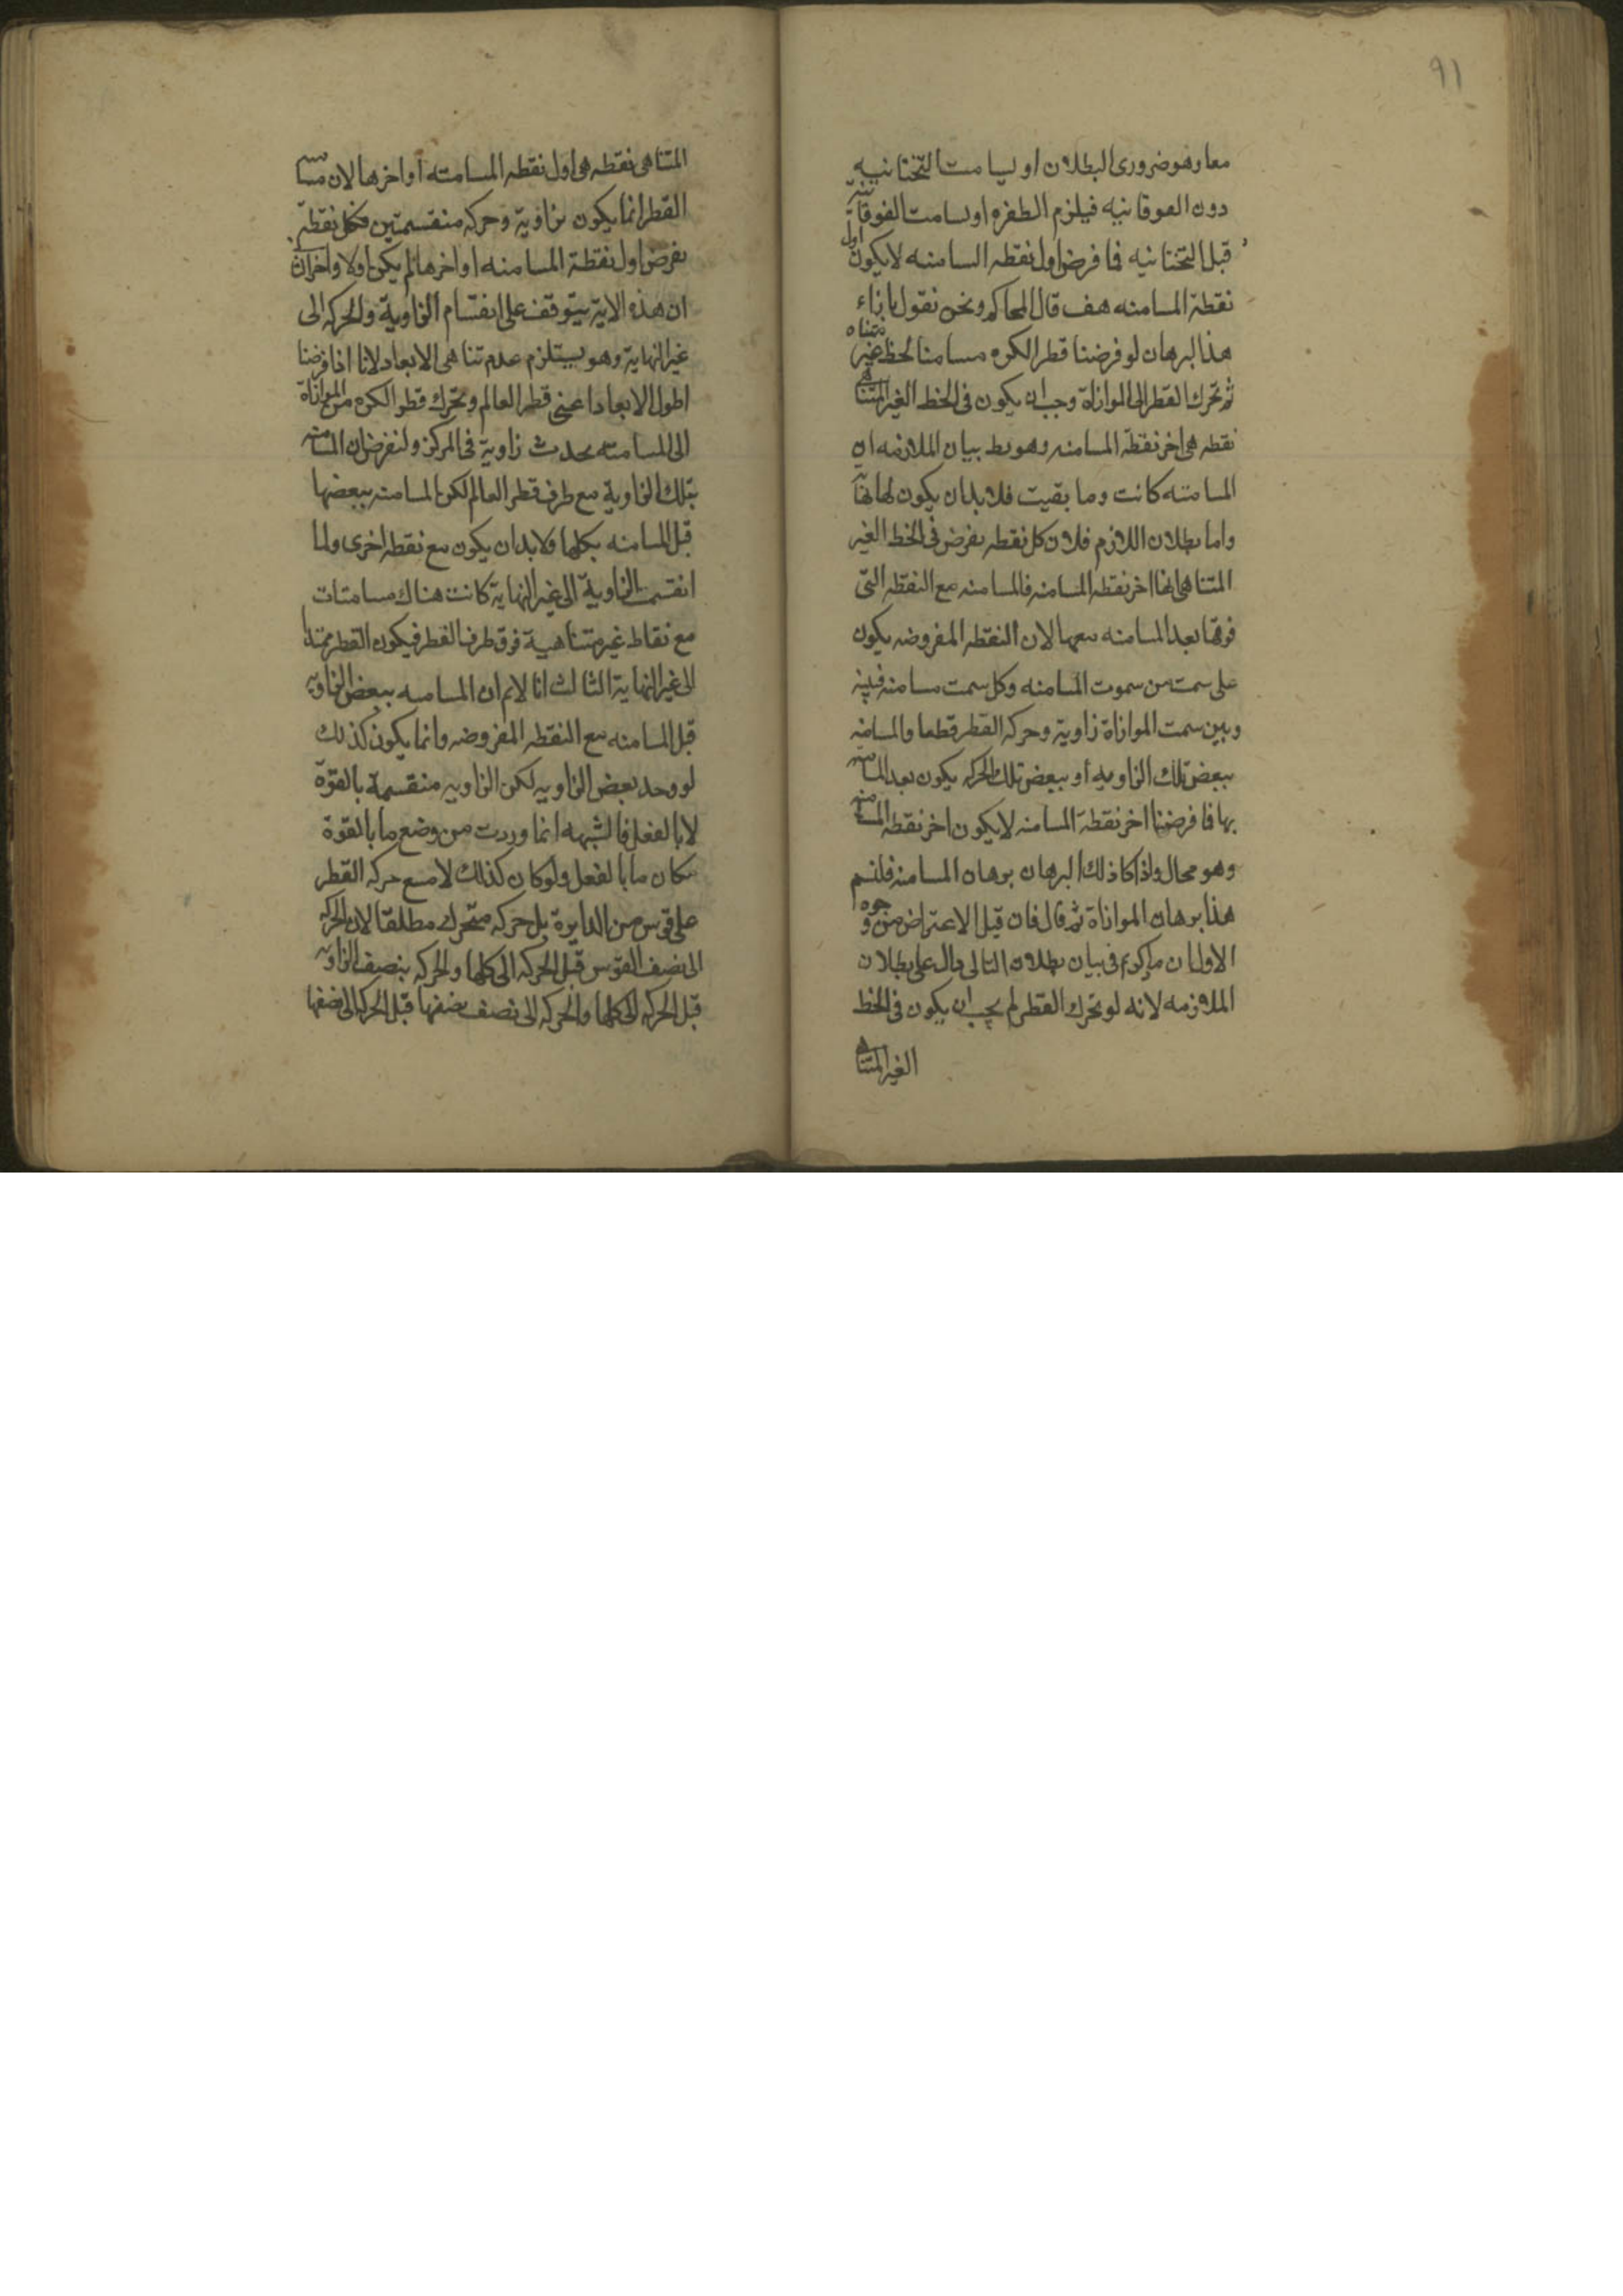 ٩١
معا وهو ضرورى البطلان او يسامت التحتانيه
دون الفوقانيه فيلزم الطفره او يسامت الفوقانية
قبل التحتانيه فما فرض اول نقطه المسامته لا يكون اول
نقطة المسامته هف قال المحاكم ونحن نقول بازاء
هذا البرهان لو فرضنا قطر الكره مسامتا لخط غير متناه
ثم تحرك القطر الى الموازاة وجب ان يكون فى الخط الغير المتناهى
نقطه هى اخر نقطة المسامته وهو بط بيان الملازمه ان
المسامته كانت وما بقيت فلا بد ان يكون لها نهاية
واما بطلان اللازم فلان كل نقطه يفرض فى الخط الغير
المتناهى انها اخر نقطه المسامته فالمسامته مع النقطه التى
فوقها بعد المسامته معها لان النقطه المفروضه يكون
على سمت من سموت المسامته وكل سمت مسامته فبينه
وبين سمت الموازاة زاوية وحركه القطر قطعا والمسامته
ببعض تلك الزاويه أو ببعض تلك الحركه يكون بعد المسامته
بها فما فرضنا اخر نقطة المسامته لا يكون اخر نقطه المسامته
وهو محال واذا كان ذلك البرهان برهان المسامته فلنسم
هذا برهان الموازاة ثم قال فان قيل الاعتراض من وجوه
الاول ان ما ذكرتم فى بيان بطلان التالى دال على بطلان
الملازمه لانه لو تحرك القطر لم يجب ان يكون فى الخط
الغير المتناهى
المتناهى نقطه هى اول نقطه المسامته او اخرها لان مسامتة
القطر انما يكون بزاوية وحركه منقسمتين فكل نقطة
يفرض اول نقطة المسامته او اخرها لم يكن اولا واخرا الثانى
ان هذه الاية يتوقف على انقسام الزاوية والحركه الى
غير النهاية وهو يستلزم عدم تناهى الابعاد لانا اذا فرضنا
اطول الابعاد اعنى قطر العالم وتحرك قطر الكره من الموازاة
الى المسامته يحدث زاوية فى المركز ولنفرض ان المسامته
بتلك الزاوية مع طرف قطر العالم لكن المسامته ببعضها
قبل المسامته بكلها فلا بد ان يكون مع نقطه اخرى ولما
انقسمت الزاوية الى غير النهاية كانت هناك مسامتات
مع نقاط غير متناهية فوق طرف القطر فيكون القطر ممتدا
الى غير النهاية الثالث انا لا نم ان المسامته ببعض الزاويه
قبل المسامته مع النقطه المفروضه وانما يكون كذلك
لو وجد بعض الزاويه لكن الزاويه منقسمة بالقوة
لا بالفعل فالشبهه انما وردت من وضع ما بالقوة
مكان ما بالفعل ولو كان كذلك لامتنع حركه القطر
على قوس من الدايرة بل حركه متحرك مطلقا لان الحركه
الى نصف القوس قبل الحركه الى كلها والحركه بنصف الزاويه
قبل الحركه الى كلها والحركه الى نصف نصفها قبل الحركه الى نصفها